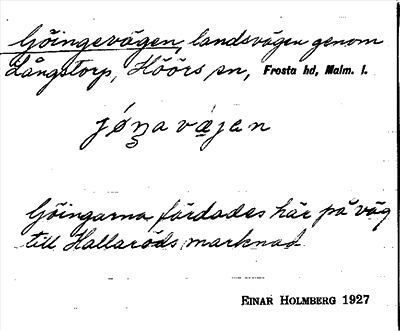 Göingevägen, landsvägen genom
Långstorp, Höörs sn, Frosta hd, Malm. l.
jó̤ŋa væ̀jen
Göingarna färdades här på väg
till Hallaröds marknad.
EINAR HOLMBERG 1927